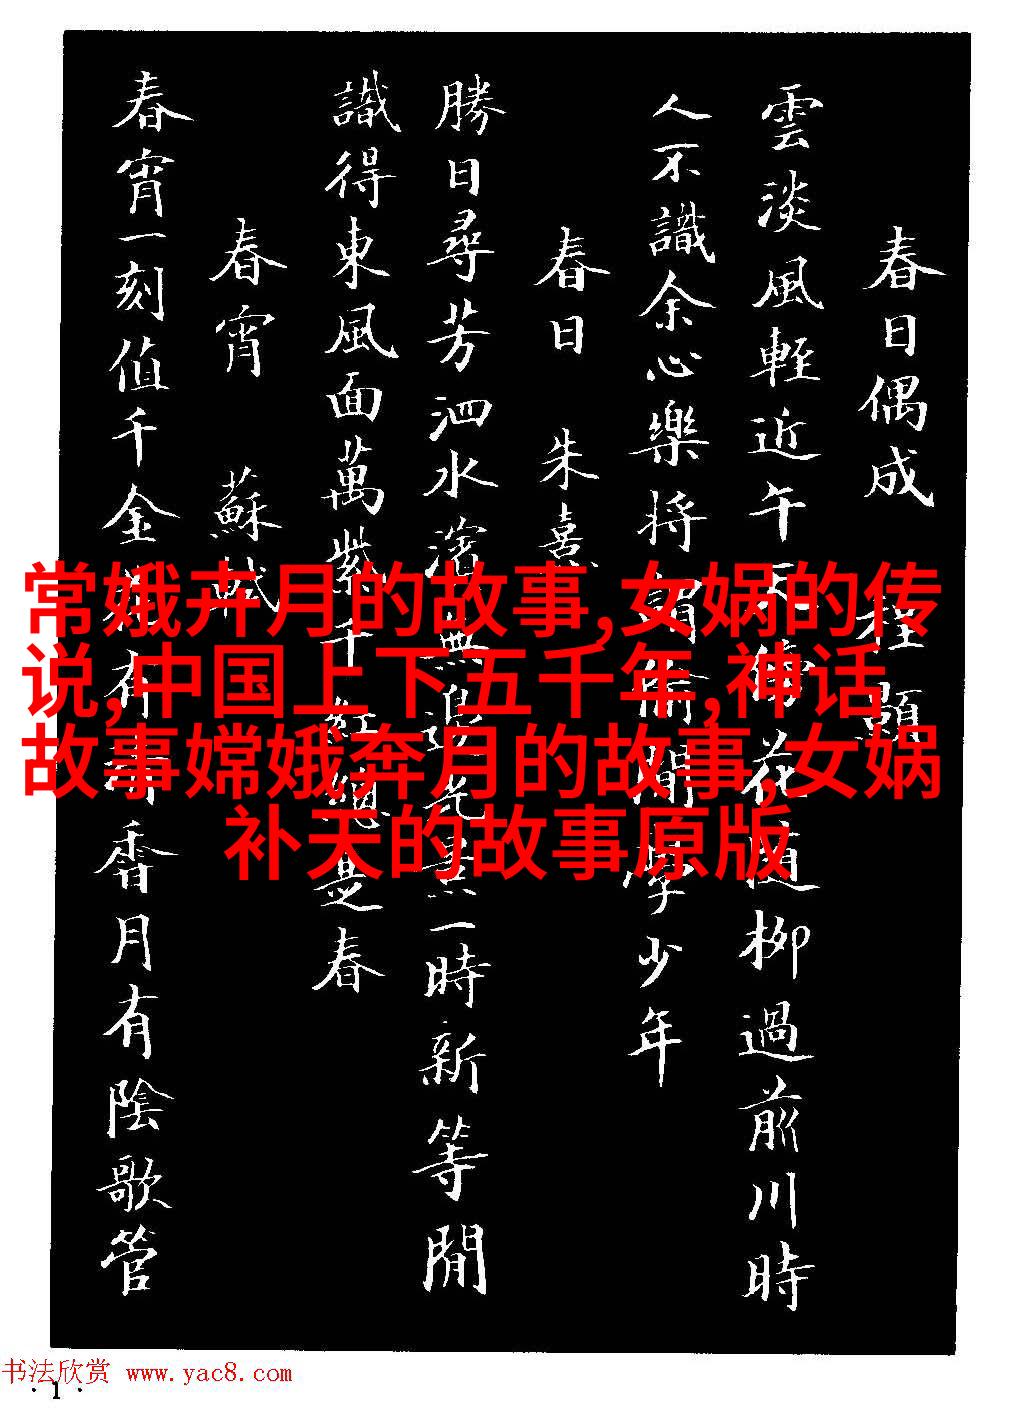 春日偶成 程顥
雲淡風輕近午天傍花隨柳過前川時
人不識余心樂將謂偷閒學少年
春日 朱熹
勝日尋芳泗水濱無邊光景一時新等閒
識得東風面萬紫千紅總是春
春宵 蘇軾
春宵一刻值千金花有清香月有陰歌管
常娥卉月的故事,女娲的传
说,中国上下五千年,神话
故事嫦娥奔月的故事,女娲
补天的故事原版
书法欣赏 www.yac8.com
·1·